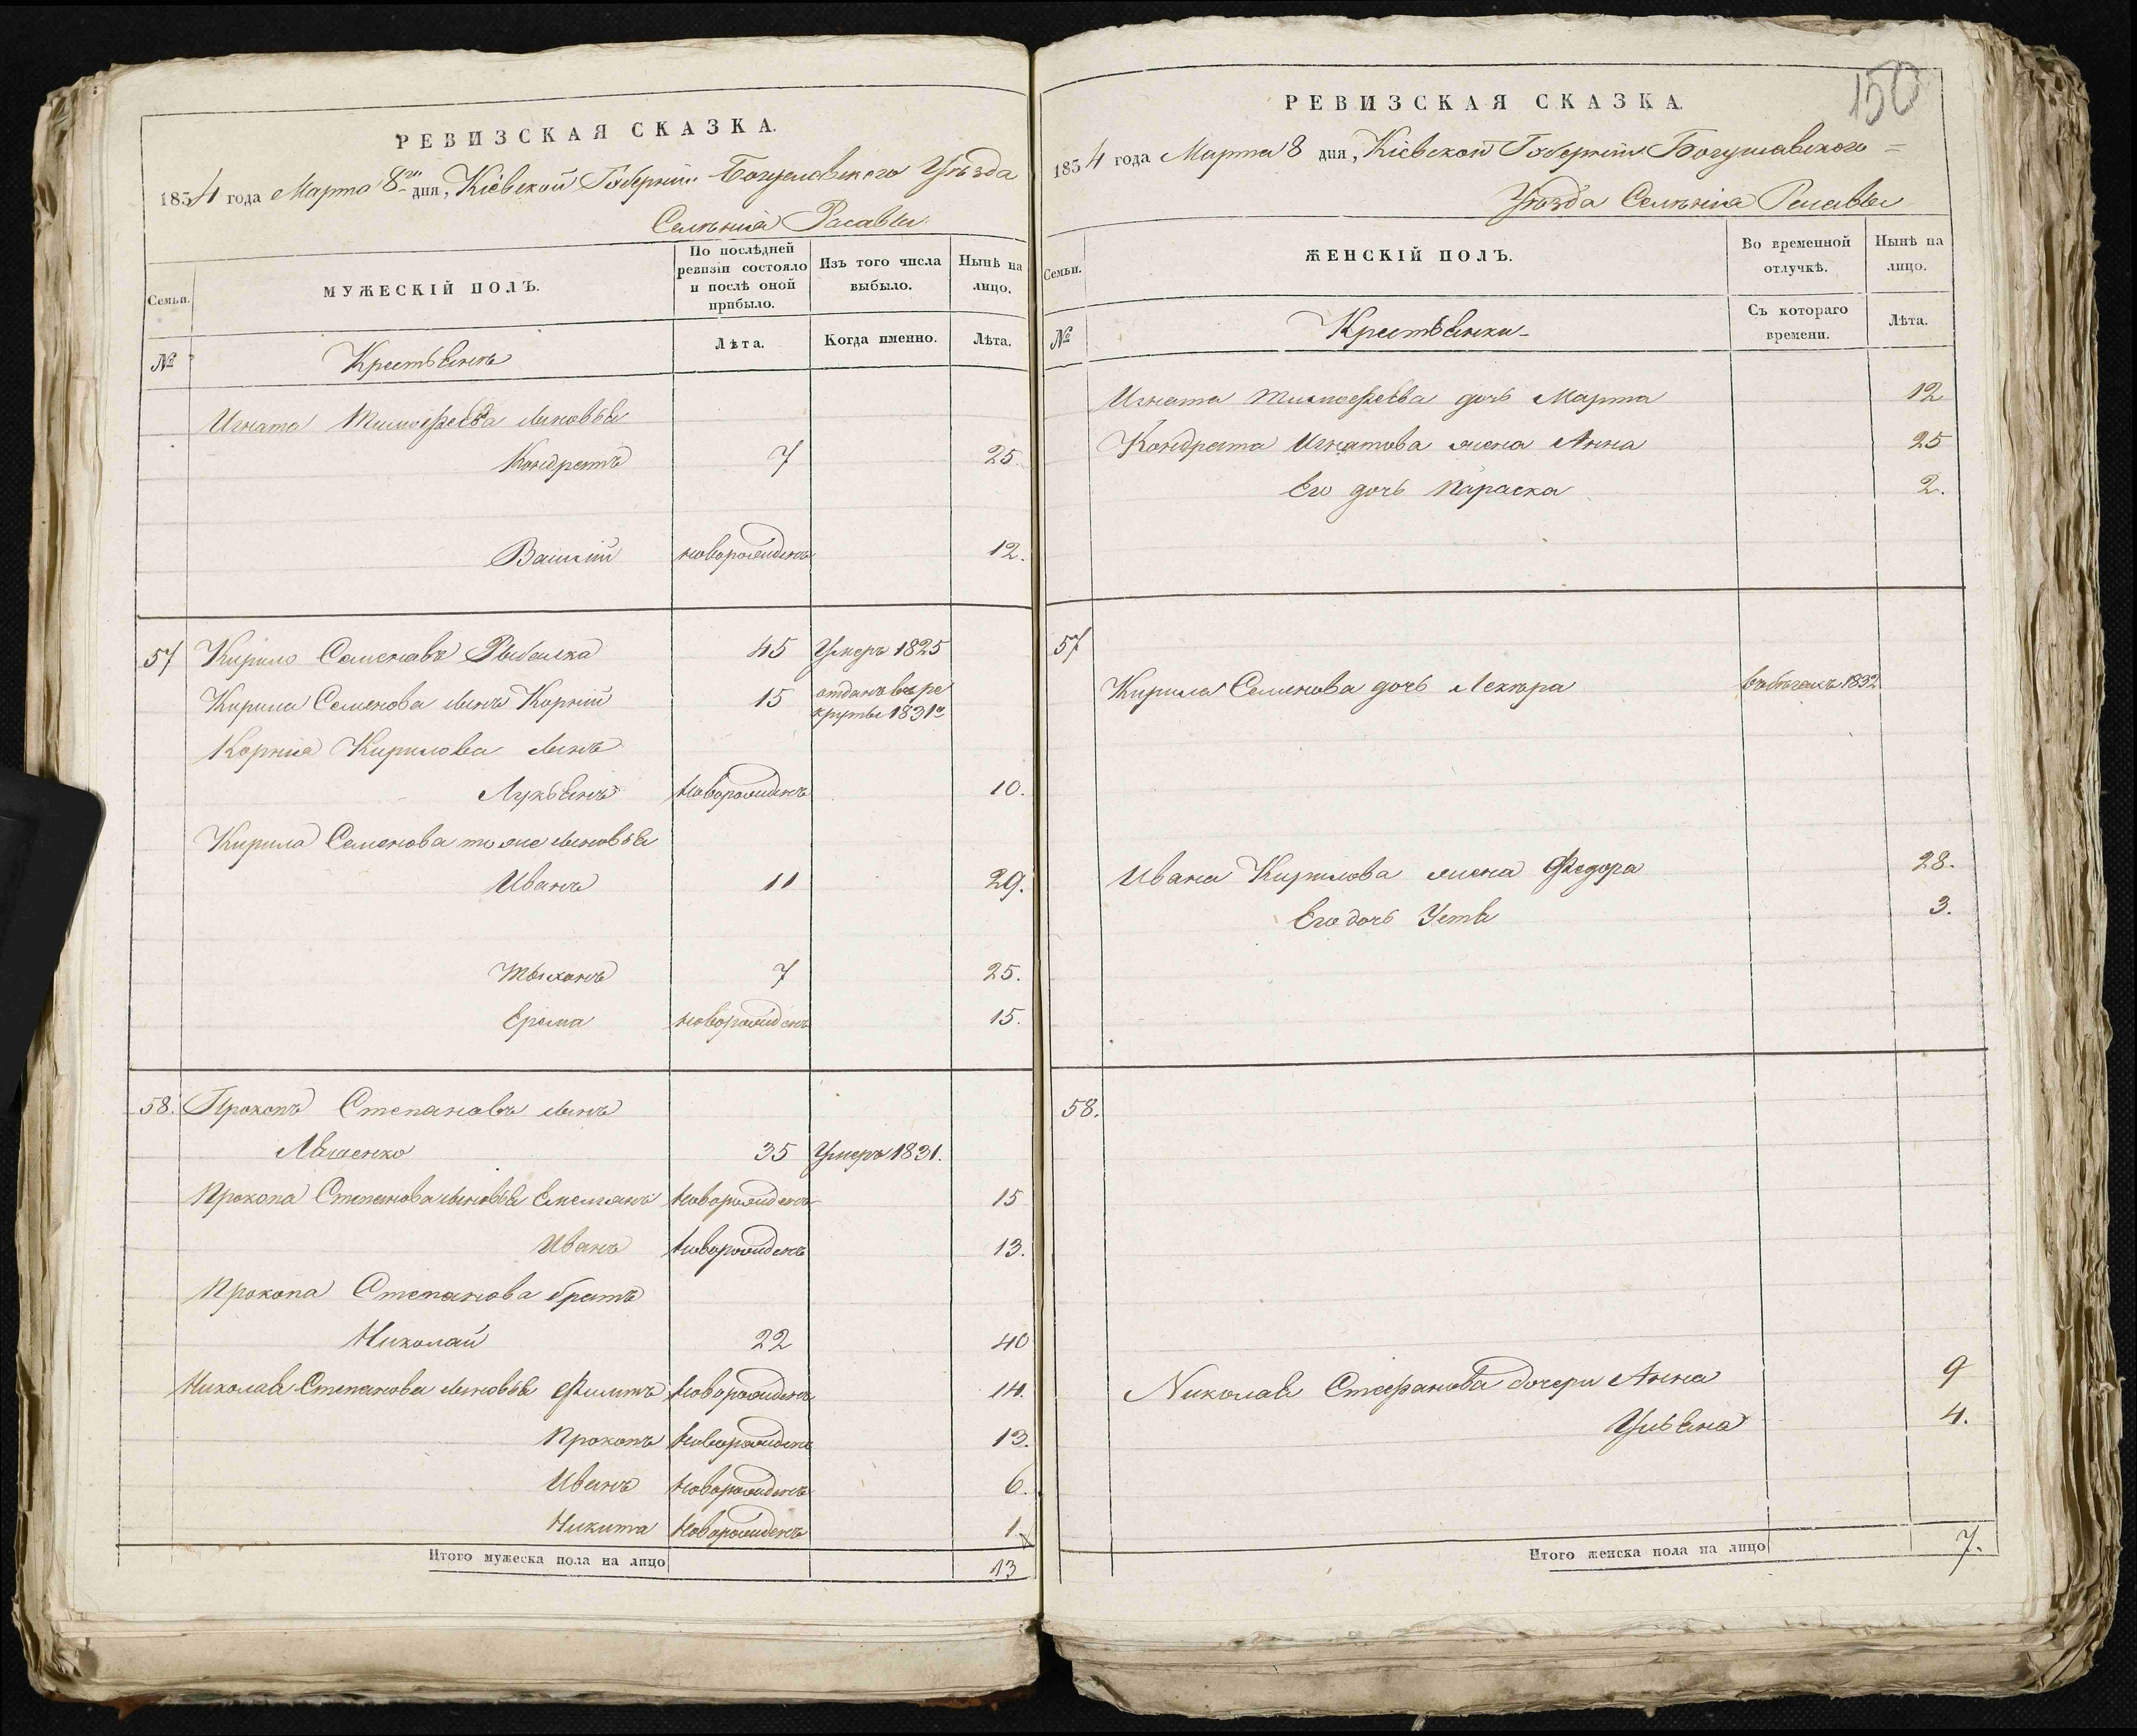 РЕВИЗСКАЯ СКАЗКА.
1834 года Марта 8го дня, Кіевской Губерніи Богуславского Уѣзда
Селенія Расавы
Семьи.
МУЖЕСКІЙ ПОЛЪ.
По послѣдней ревизіи состояло и послѣ оной прибыло.
Изъ того числа выбыло.
Нынѣ на лицо.
№
Крестьянъ
Лѣта.
Когда именно.
Лѣта.
Игната Тимофеева сыновья
Кондратъ 7 25
Василій новорожденъ 12.
57 Кирило Семеновъ Рыбалка 45 Умеръ 1825
Кирила Семенова сынъ Корній 15 отданъ въ ре
круты 1831го
Корнія Кирилова сынъ
Лукьянъ новорожденъ 10.
Кирила Семенова тоже сыновья
Иванъ 11 29.
Тыхонъ 7 25.
Ерема новорожденъ 15.
58. Прокопъ Степановъ сынъ
35 Умеръ 1831.
Прокопа Степанова сыновья Емельянъ новорожденъ 15
Иванъ новорожденъ 13.
Прокопа Степанова братъ
Николай 22 40
Николая Степанова сыновья Филипъ новорожденъ 14.
Прокопъ новорожденъ 13.
Иванъ новорожденъ 6.
Никита новорожденъ 1
Итого мужеска пола на лицо 13
150
РЕВИЗСКАЯ СКАЗКА.
1834 года Марта 8 дня, Кіевской Губерніи Богуславского =
Уѣзда Селенія Расавы
Семьи.
ЖЕНСКІЙ ПОЛЪ.
Во временной отлучкѣ.
Нынѣ на лицо.
№
Крестьянки
Съ котораго времени.
Лѣта.
Игната Тимофеева дочь Марта 12
Кондрата Игнатова жена Анна 25
Его дочь Параска 2.
57
Кирила Семенова дочь 1832
Ивана Кирилова жена Федора 28.
Его дочь Устя 3.
58.
Николая Стефанова дочери Анна 9
Ульяна 4.
Итого женска пола на лицо 7.